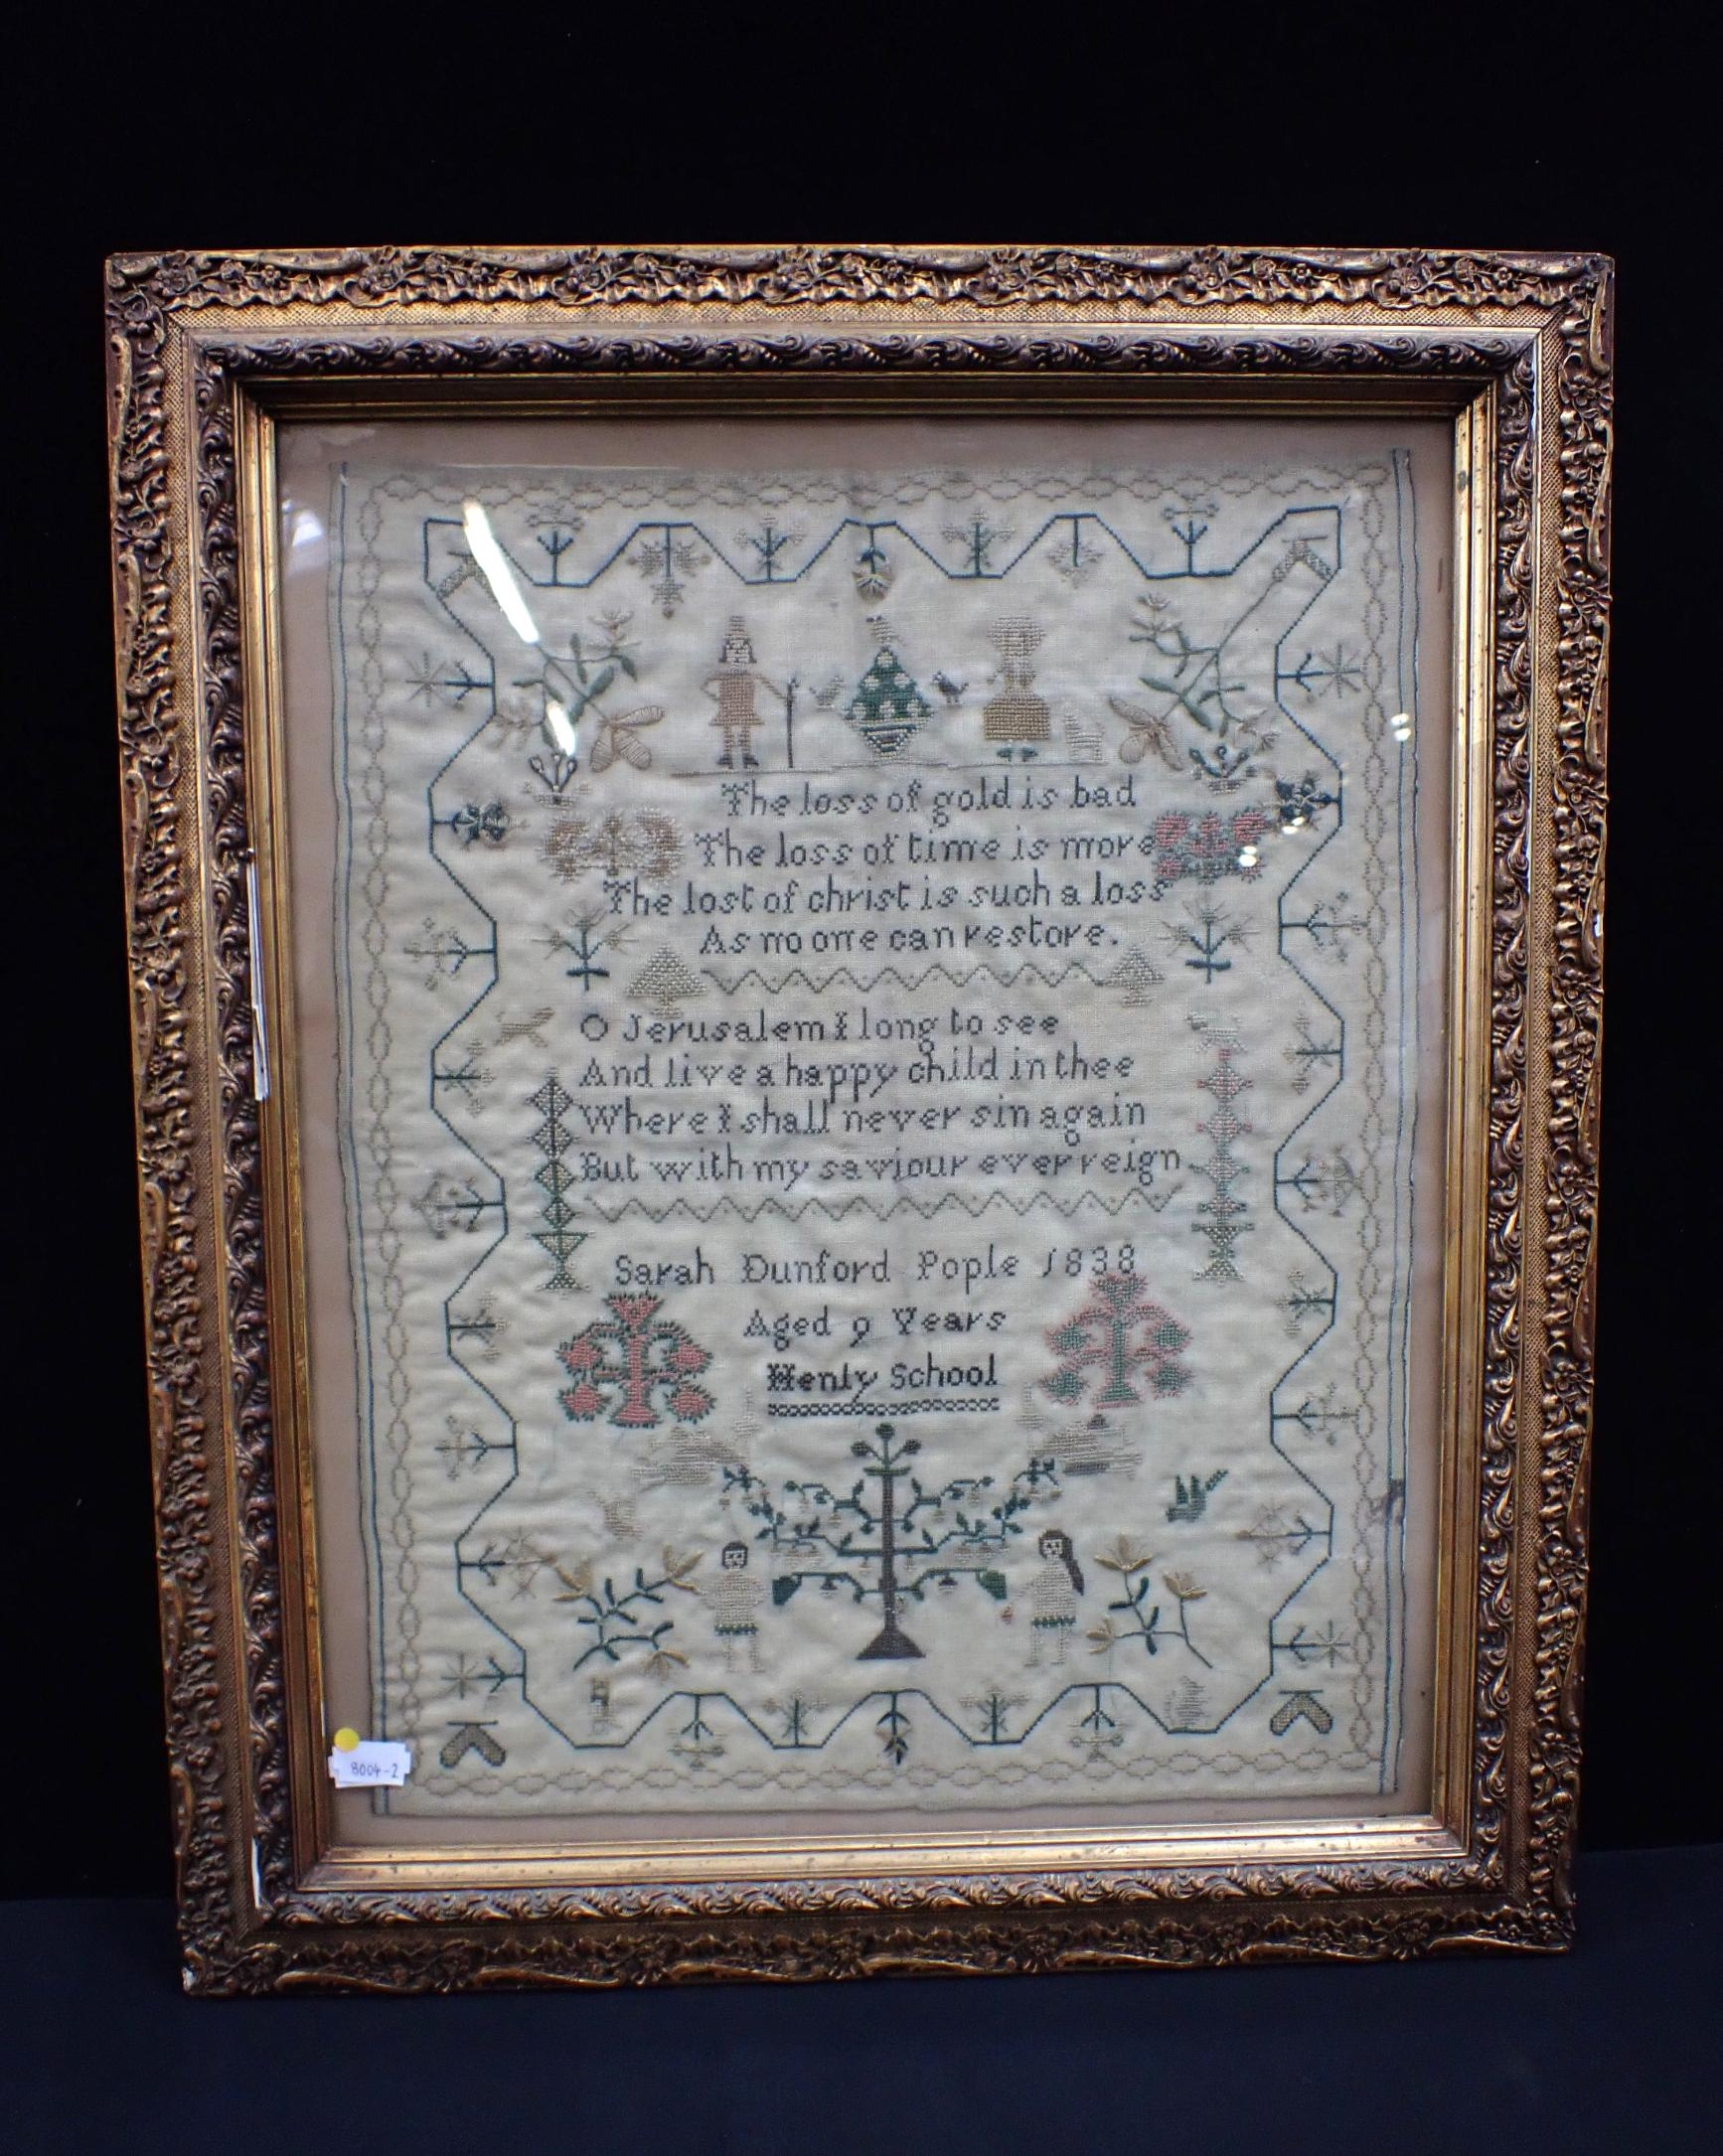 The loss of gold is bad
The loss of time is more
The lost of christ is such a loss
As no one can restore.
O Jerusalem I long to see
And live a happy child in thee
Where I shall never sin again
But with my saviour ever reign
Sarah Dunford Pople 1838
Aged 9 Years
Henly School
8004-2